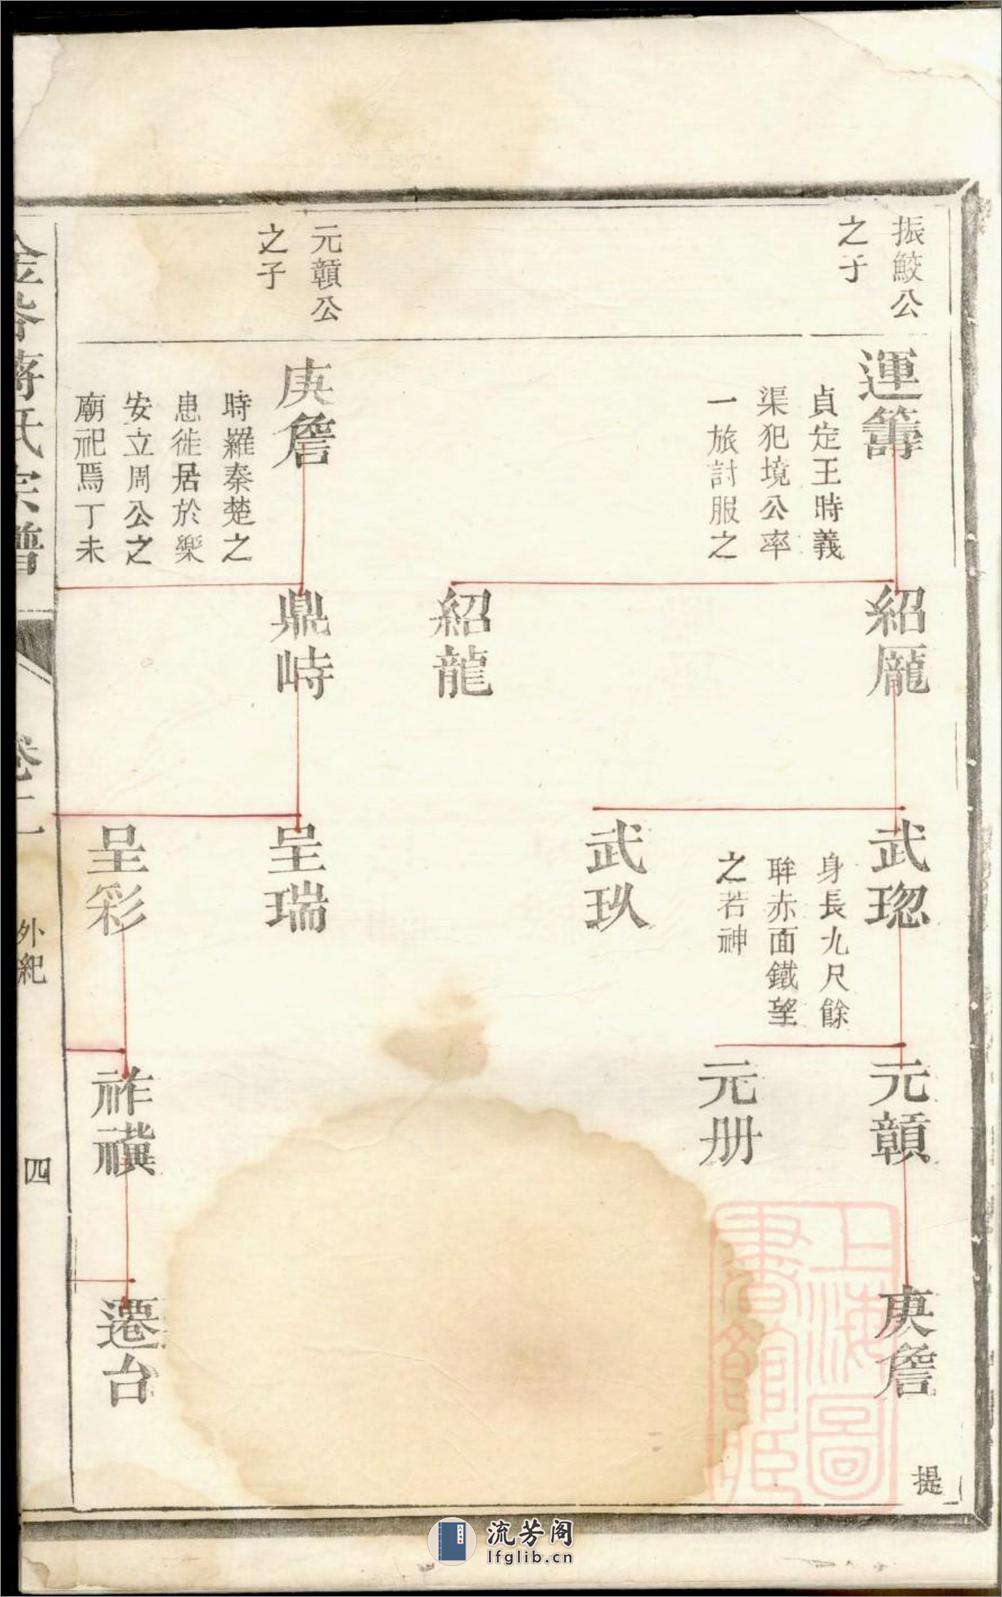 振鮫公
之子
運籌
貞定王時義
渠犯境公率
一旅討服之
紹龎
紹龍
武璁
身長九尺餘
眸赤面鐵望
之若神
武玖
元䪺
元册
庚詹
提
元䪺公
之子
庚詹
時羅秦楚之
患徙居於樂
安立周公之
廟祀焉丁未
鼎峙
呈瑞
呈彩
祚禶
遷台
氏宗譜
外紀
四
上海圖
書館藏
流芳阁
lfglib.cn